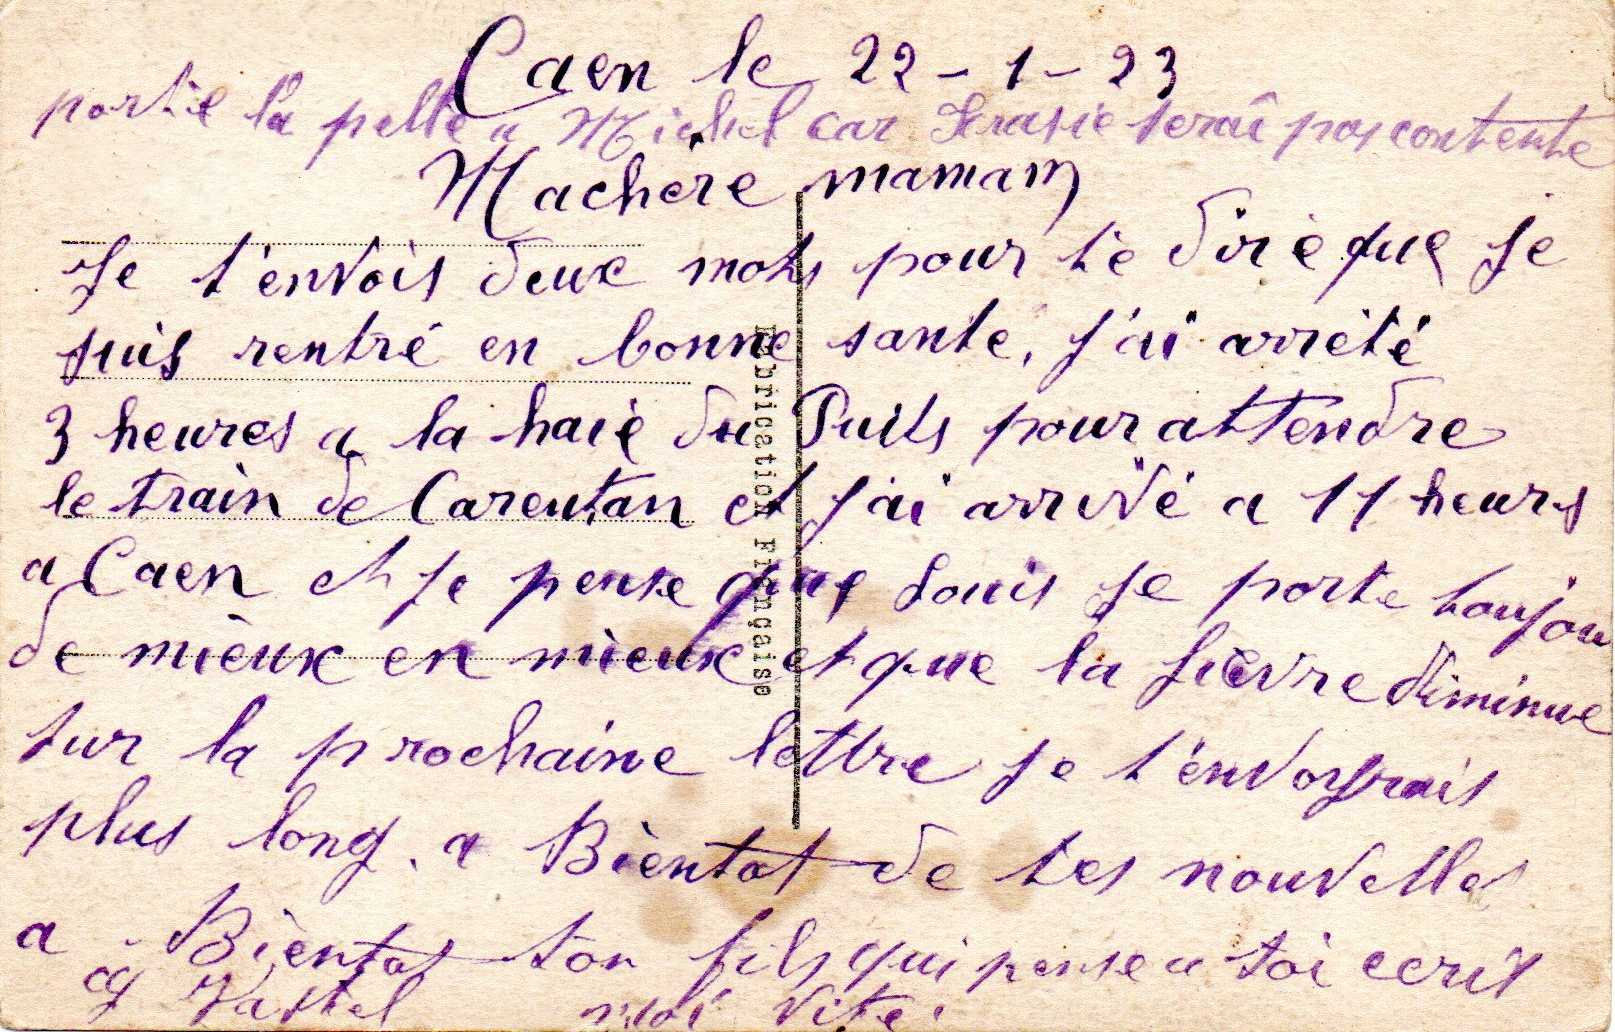 Caen le 22-1-23
porte la pelle a Michel car serai pas contente
Machère mamam
Je t'envois deux mots pour te dire que je
suis rentré en bonne sante, j'ai arrèté
3 heures a la haie du Puits pour attendre
le train de Carentan et j'ai arrivé a 11 heurs
a Caen et je pense que Louis se porte toujou
de mieux en mieux et que la fièvre diminue
sur la prochaine lettre je t'envoyrais
plus long. a Bientot de tes nouvelles
a Bientot ton fils qui pense a toi ecris
Vastel moi vite.
Fabrication Française